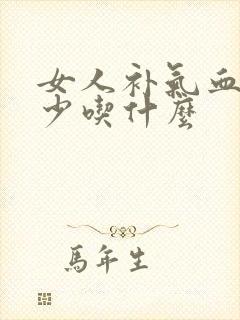 女人补氣血
少喫什麼
馬年生